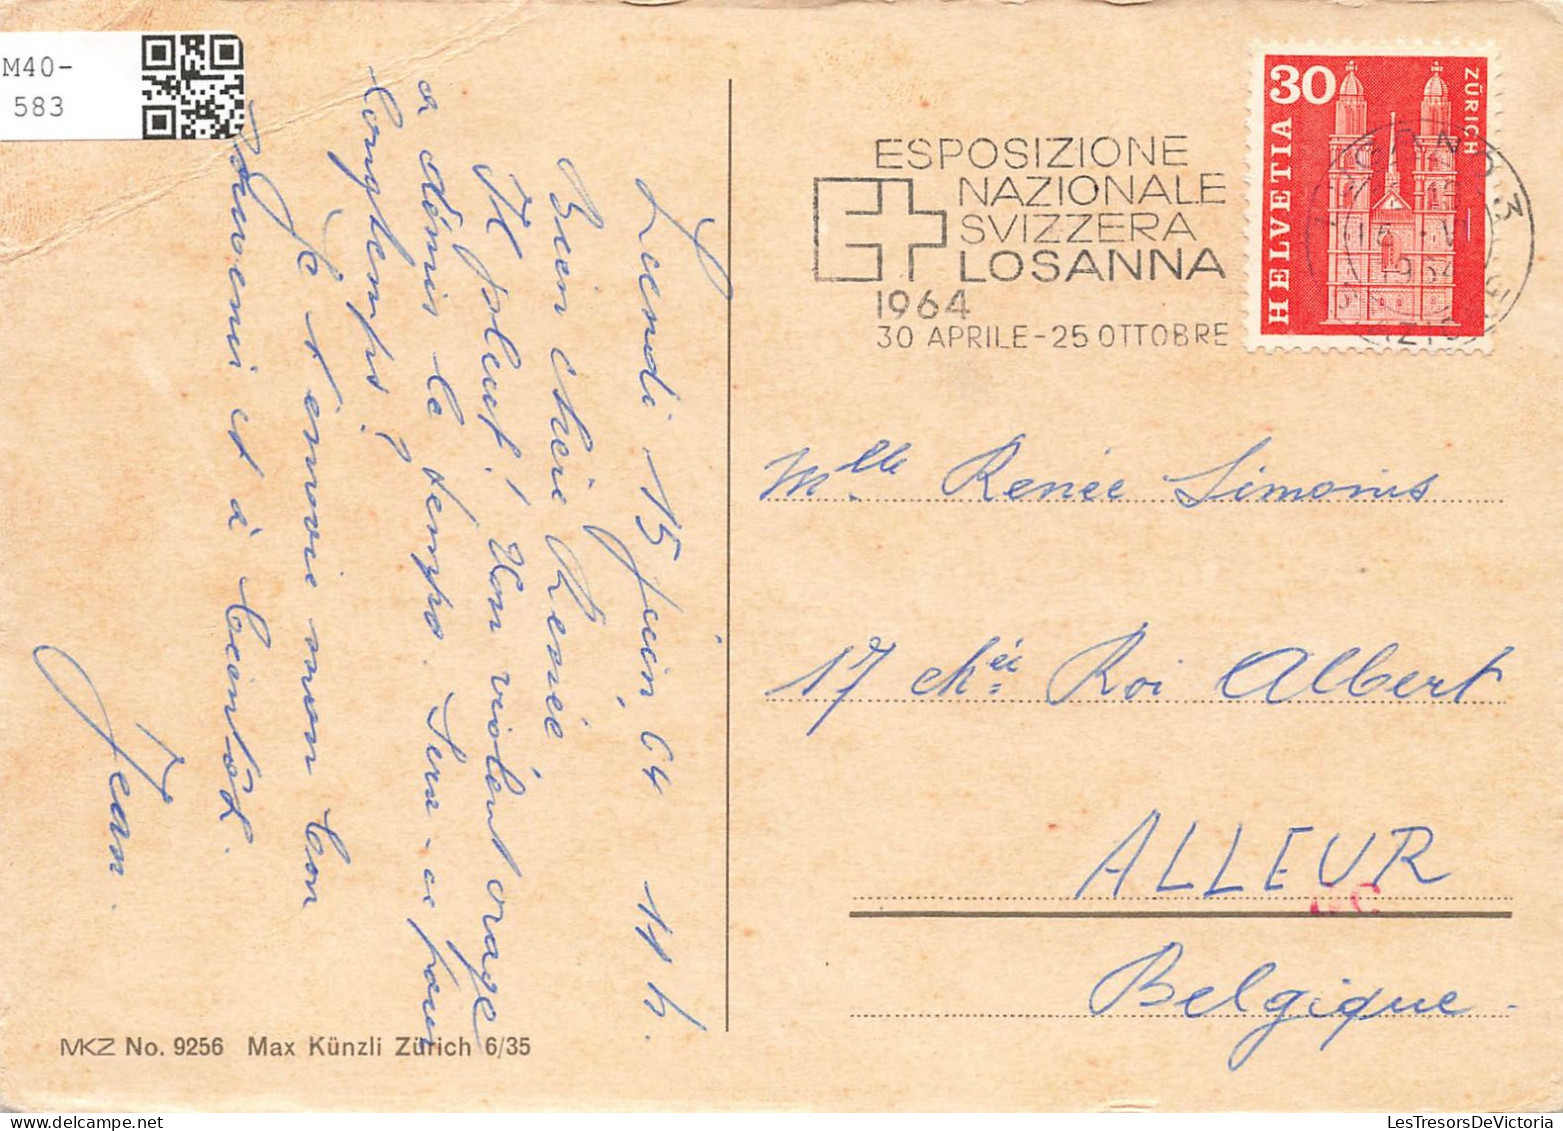 M40-
583
Lundi 15 juin 64 11 h.
Bien chère Renée
Il pleut! Un violent orage
a démis le temps. Sera-ce pour
longtemps?
Je t'envoie mon bon
souvenir et à bientôt.
Jean.
MKZ No. 9256 Max Künzli Zürich 6/35
ESPOSIZIONE
NAZIONALE
SVIZZERA
LOSANNA
1964
30 APRILE-25 OTTOBRE
30
HELVETIA
ZÜRICH
Mlle Renée Simonis
17 chéé Roi Albert
ALLEUR
Belgique
LesTresorsDeVictoria